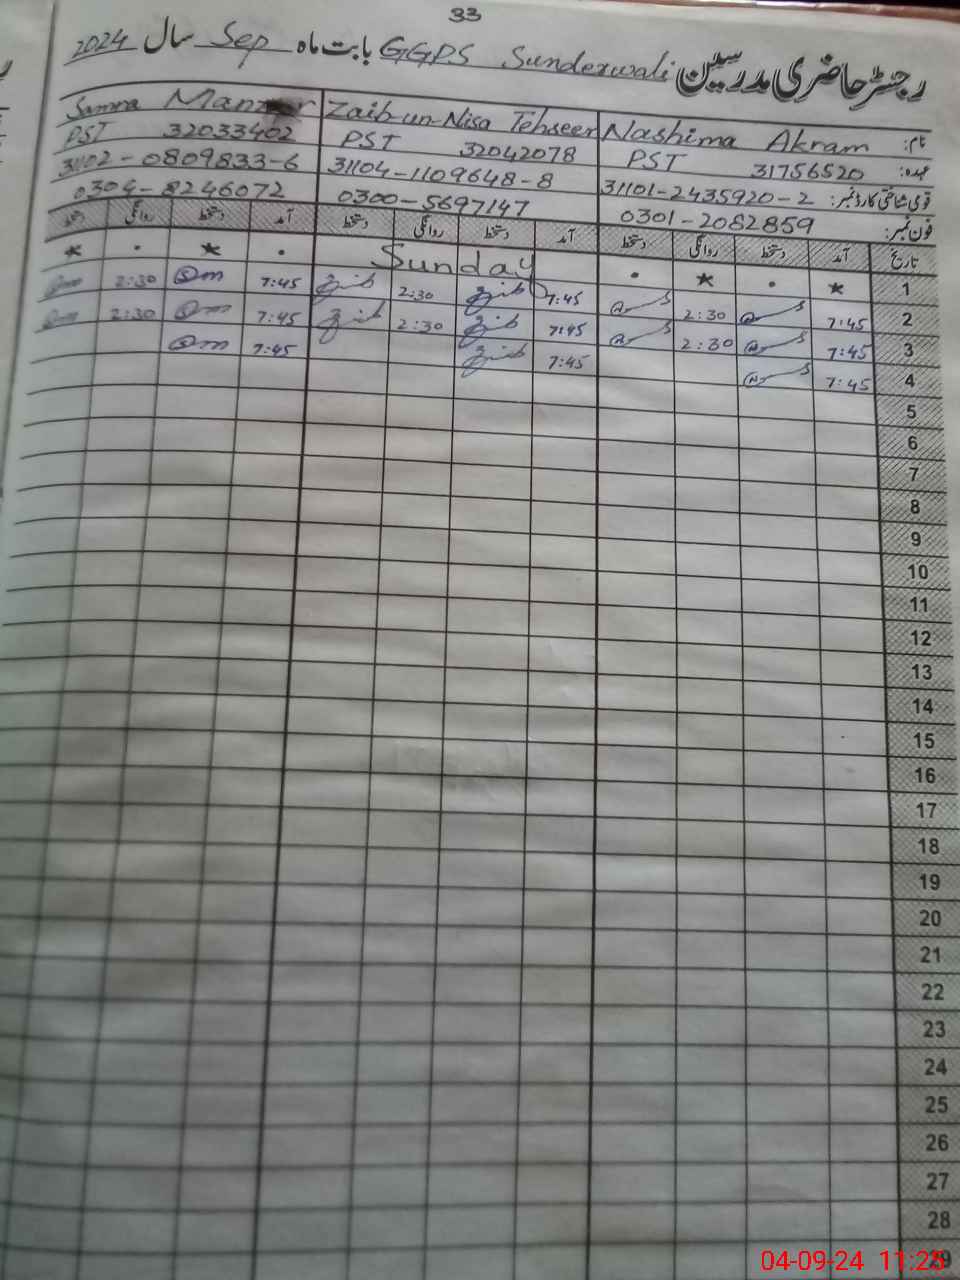 33
رجسٹر حاضری مدرسین GGPS Sunderwali بابت ماہ Sep سال 2024
نام: Nashima Akram Zaib-un-Nisa Tehseen Samra Manzoor
عہدہ: PST 31756520 PST 32042078 PST 32033402
قومی شناختی کارڈ نمبر: 31101-2435920-2 31104-1109648-8 31102-0809833-6
فون نمبر: 0301-2082859 0300-5697147 0304-8246072
تاریخ آمد دستخط روانگی دستخط آمد دستخط روانگی دستخط آمد دستخط روانگی دستخط
1 * . * . Sunday . * . *
2 7:45 2:30 7:45 2:30 7:45 2:30
3 7:45 2:30 7:45 2:30 7:45 2:30
4 7:45 7:45 7:45
5
6
7
8
9
10
11
12
13
14
15
16
17
18
19
20
21
22
23
24
25
26
27
28
29
04-09-24 11:25